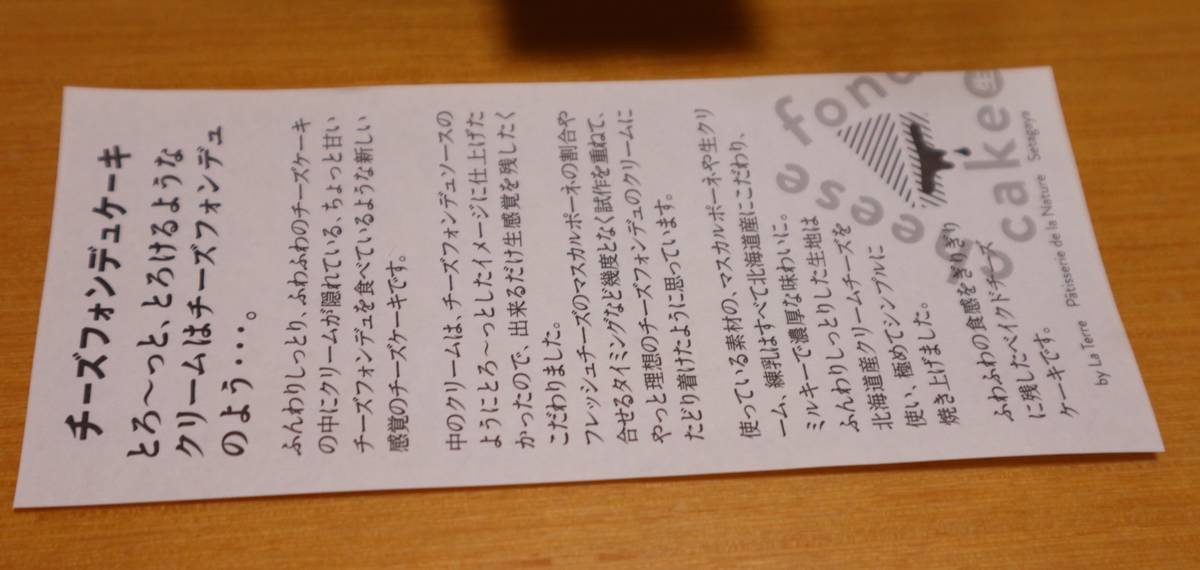 チーズフォンデュケーキ
とろ～っと、とろけるような
クリームはチーズフォンデュ
のよう・・・。
ふんわりしっとり、ふわふわのチーズケーキ
の中にクリームが隠れている、ちょっと甘い
チーズフォンデュを食べているような新しい
感覚のチーズケーキです。
中のクリームは、チーズフォンデュソースの
ようにとろ～っとしたイメージに仕上げた
かったので、出来るだけ生感覚を残したく
こだわりました。
フレッシュチーズのマスカルポーネの割合や
合せるタイミングなど幾度となく試作を重ねて、
やっと理想のチーズフォンデュのクリームに
たどり着けたように思っています。
使っている素材の、マスカルポーネや生クリ
ーム、練乳はすべて北海道産にこだわり、
ミルキーで濃厚な味わいに。
ふんわりしっとりした生地は
北海道産クリームチーズを
使い、極めてシンプルに
焼き上げました。
ふわふわの食感をぎりぎり
に残したベイクドチーズ
ケーキです。
by La Terre Pâtisserie de la Nature Setagaya
cake